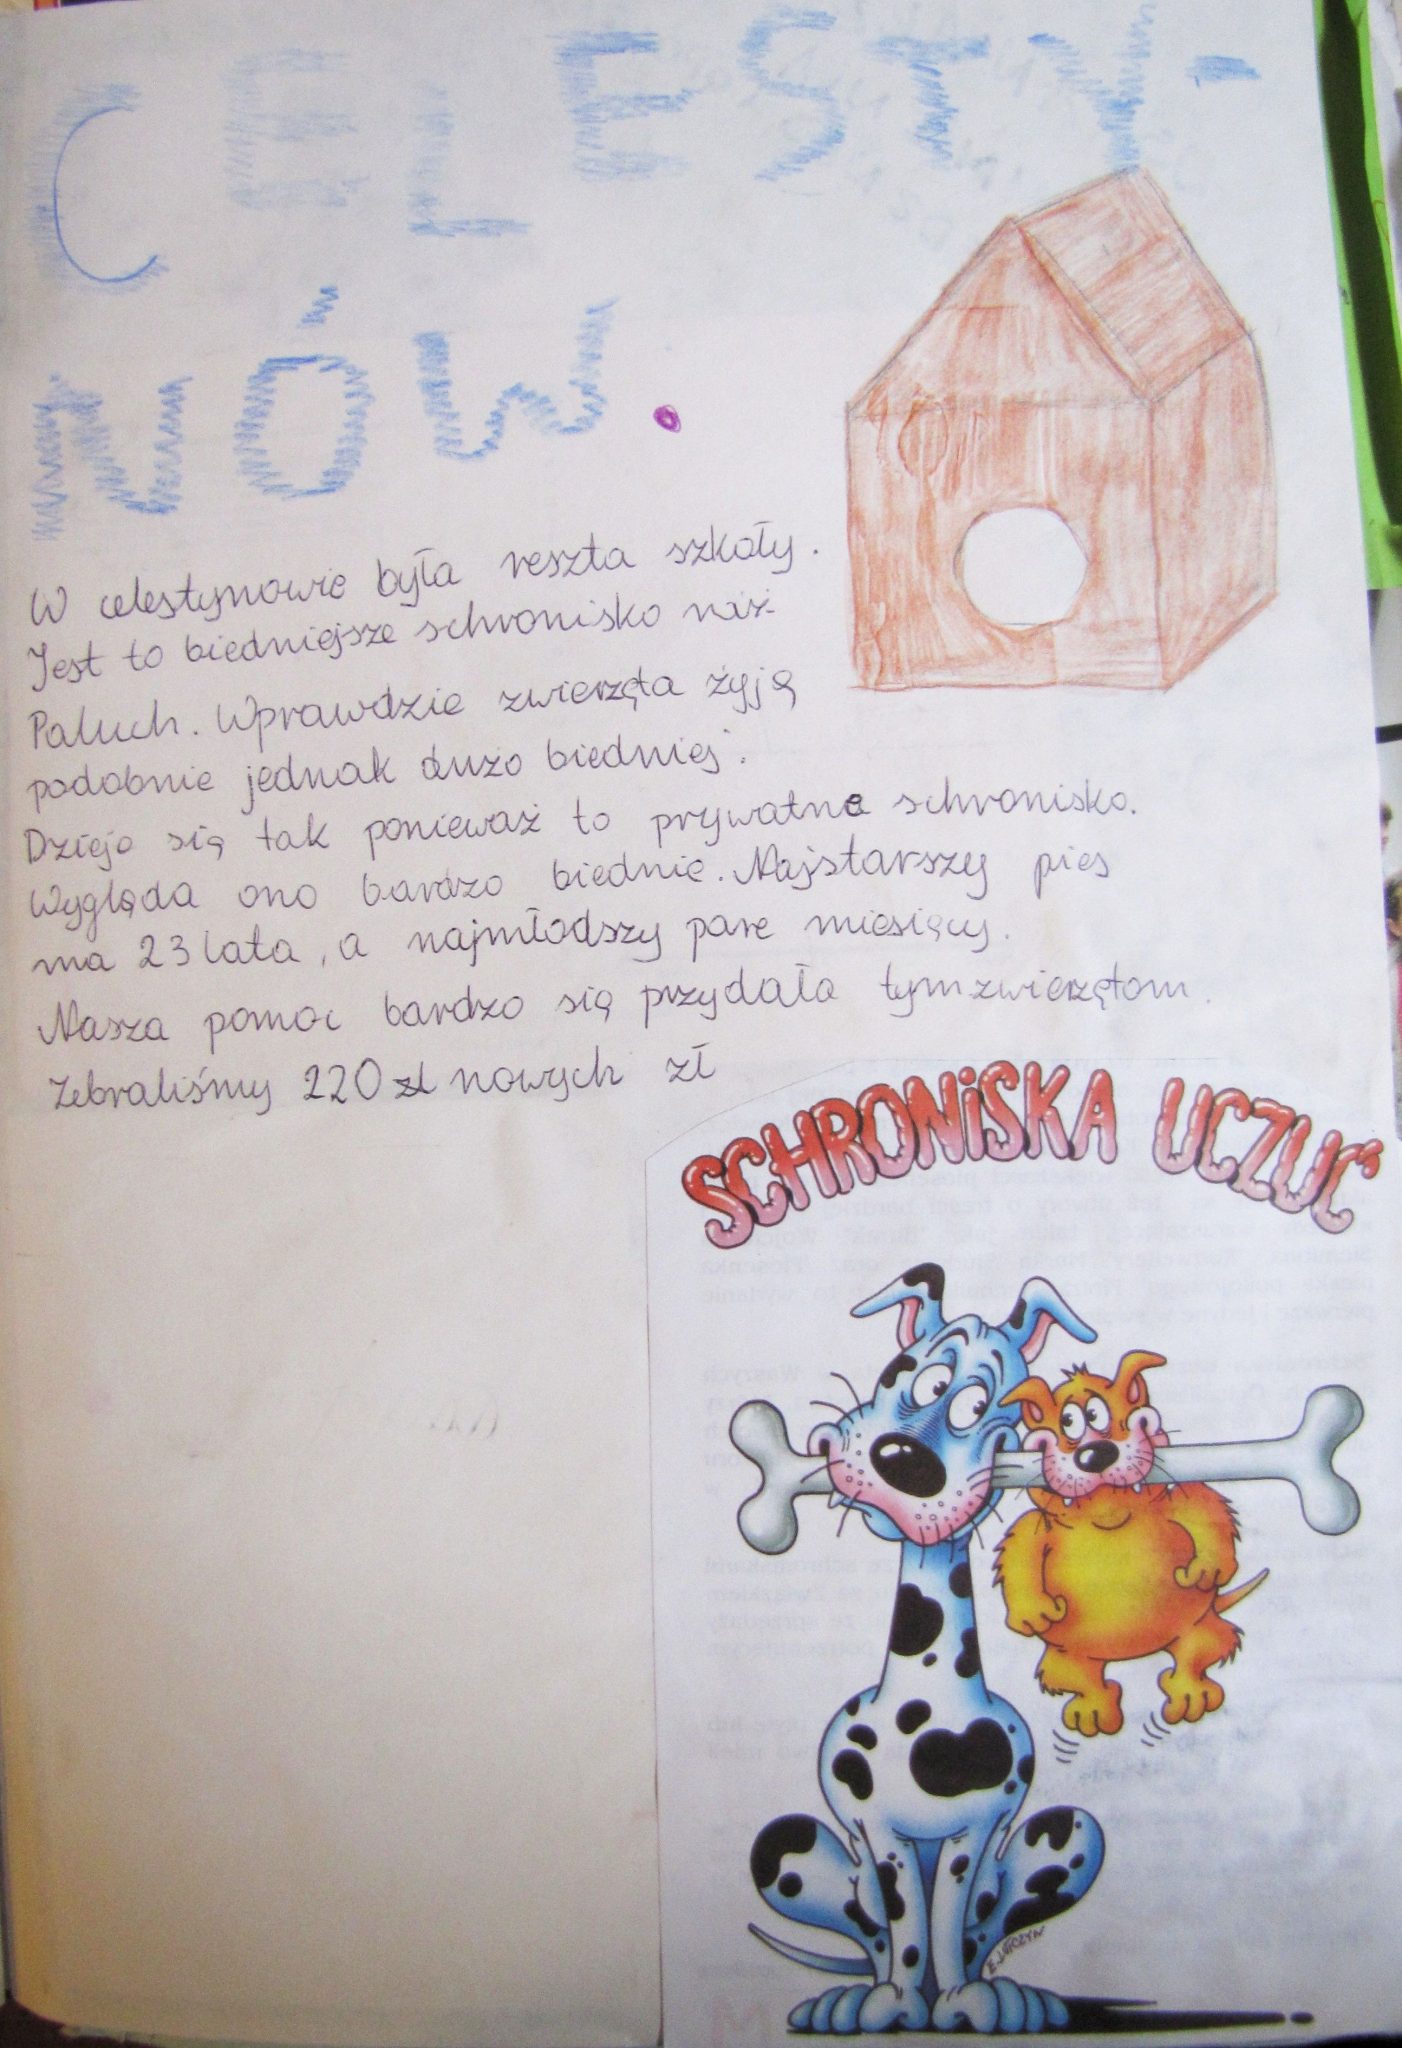 CELESTY-
NÓW.
W celestynowie była reszta szkoły.
Jest to biedniejsze schronisko niż
Paluch. Wprawdzie zwierzęta żyją
podobnie jednak dużo biedniej.
Dzieje się tak ponieważ to prywatne schronisko.
Wygląda ono bardzo biednie. Najstarszy pies
ma 23 lata, a najmłodszy pare miesięcy.
Nasza pomoc bardzo się przydała tym zwierzętom.
Zebraliśmy 220 zł nowych zł
SCHRONiSKA UCZUĆ
E. LUTCZYN